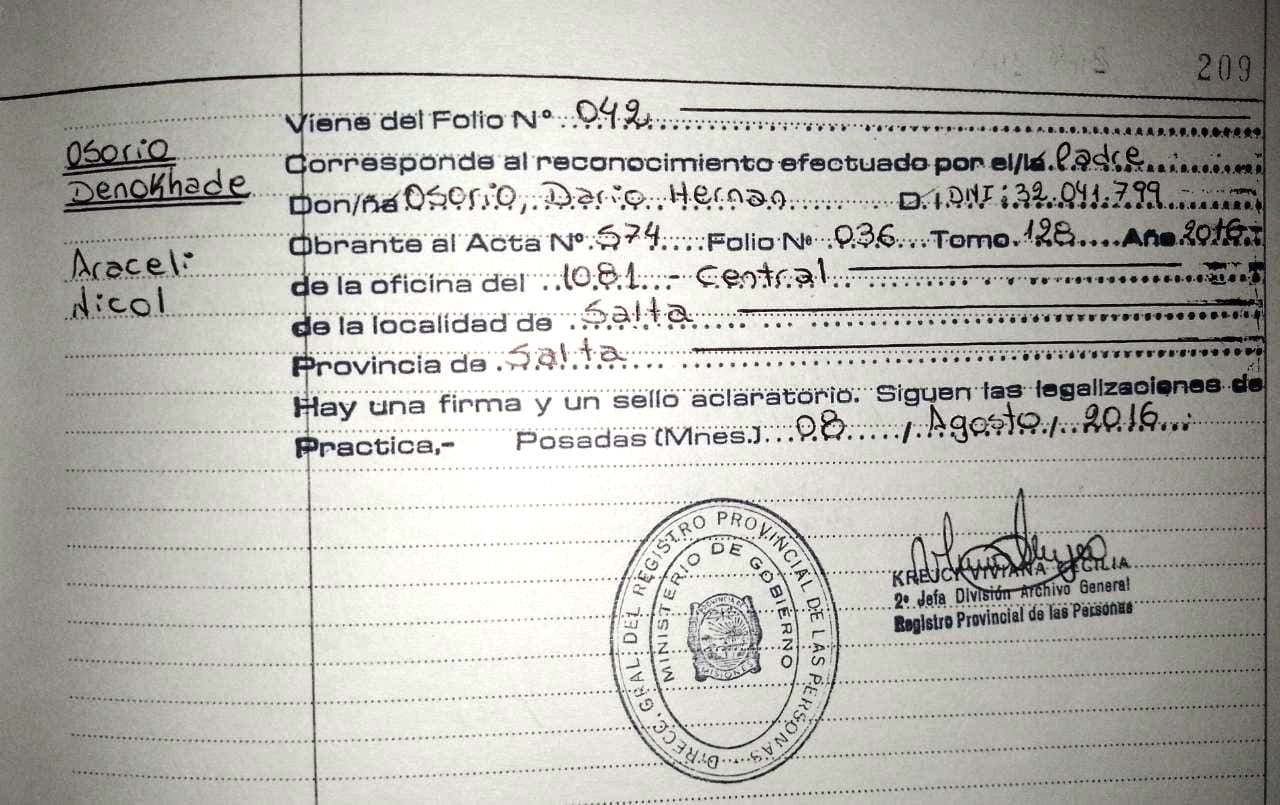 209
Viene del Folio N° 042
Osorio
Denokhade
Araceli
Nicol
Corresponde al reconocimiento efectuado por el/la Padre
Don/ña Osorio, Dario Hernan D.I. DNI: 32.041.799
Obrante al Acta N° 574 Folio N° 036 Tomo 128 Año 2016
de la oficina del 1081 - Central
de la localidad de Salta
Provincia de Salta
Hay una firma y un sello aclaratorio. Siguen las legalizaciones de
Practica,- Posadas (Mnes.) 08 / Agosto / 2016
DIRECC. GRAL. DEL REGISTRO PROVINCIAL DE LAS PERSONAS
MINISTERIO DE GOBIERNO
PROVINCIA DE
MISIONES
VIVIANA CECILIA
2° Jefa División Archivo General
Registro Provincial de las Personas